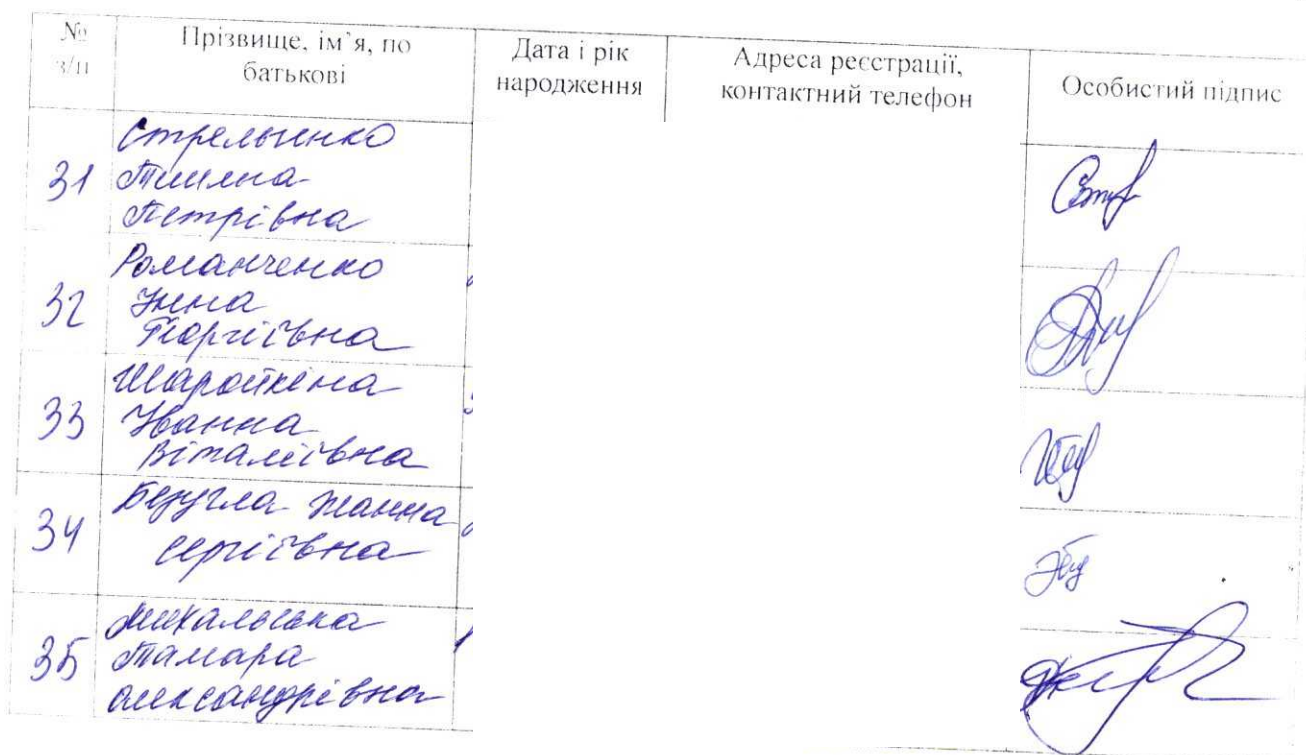 № з/п
Прізвище, ім`я, по
батькові
Дата і рік
народження
Адреса реєстрації,
контактний телефон
Особистий підпис
31
Петрівна
32
Романченко
Інна
Георгіївна
33
Іванна
Віталіївна
34
Безугла Жанна
Сергіївна
35
Михальська
Тамара
Олександрівна